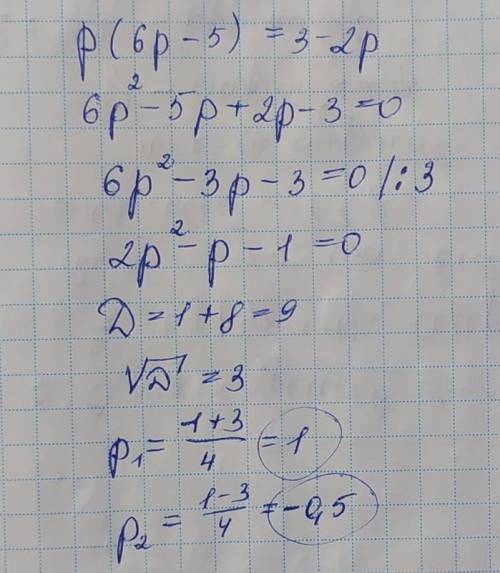 p(6p-5) = 3-2p
6p²-5p+2p-3=0
6p²-3p-3=0 /:3
2p²-p-1=0
D=1+8=9
√D=3
p₁ = (1+3)/4 = 1
p₂ = (1-3)/4 = -0,5